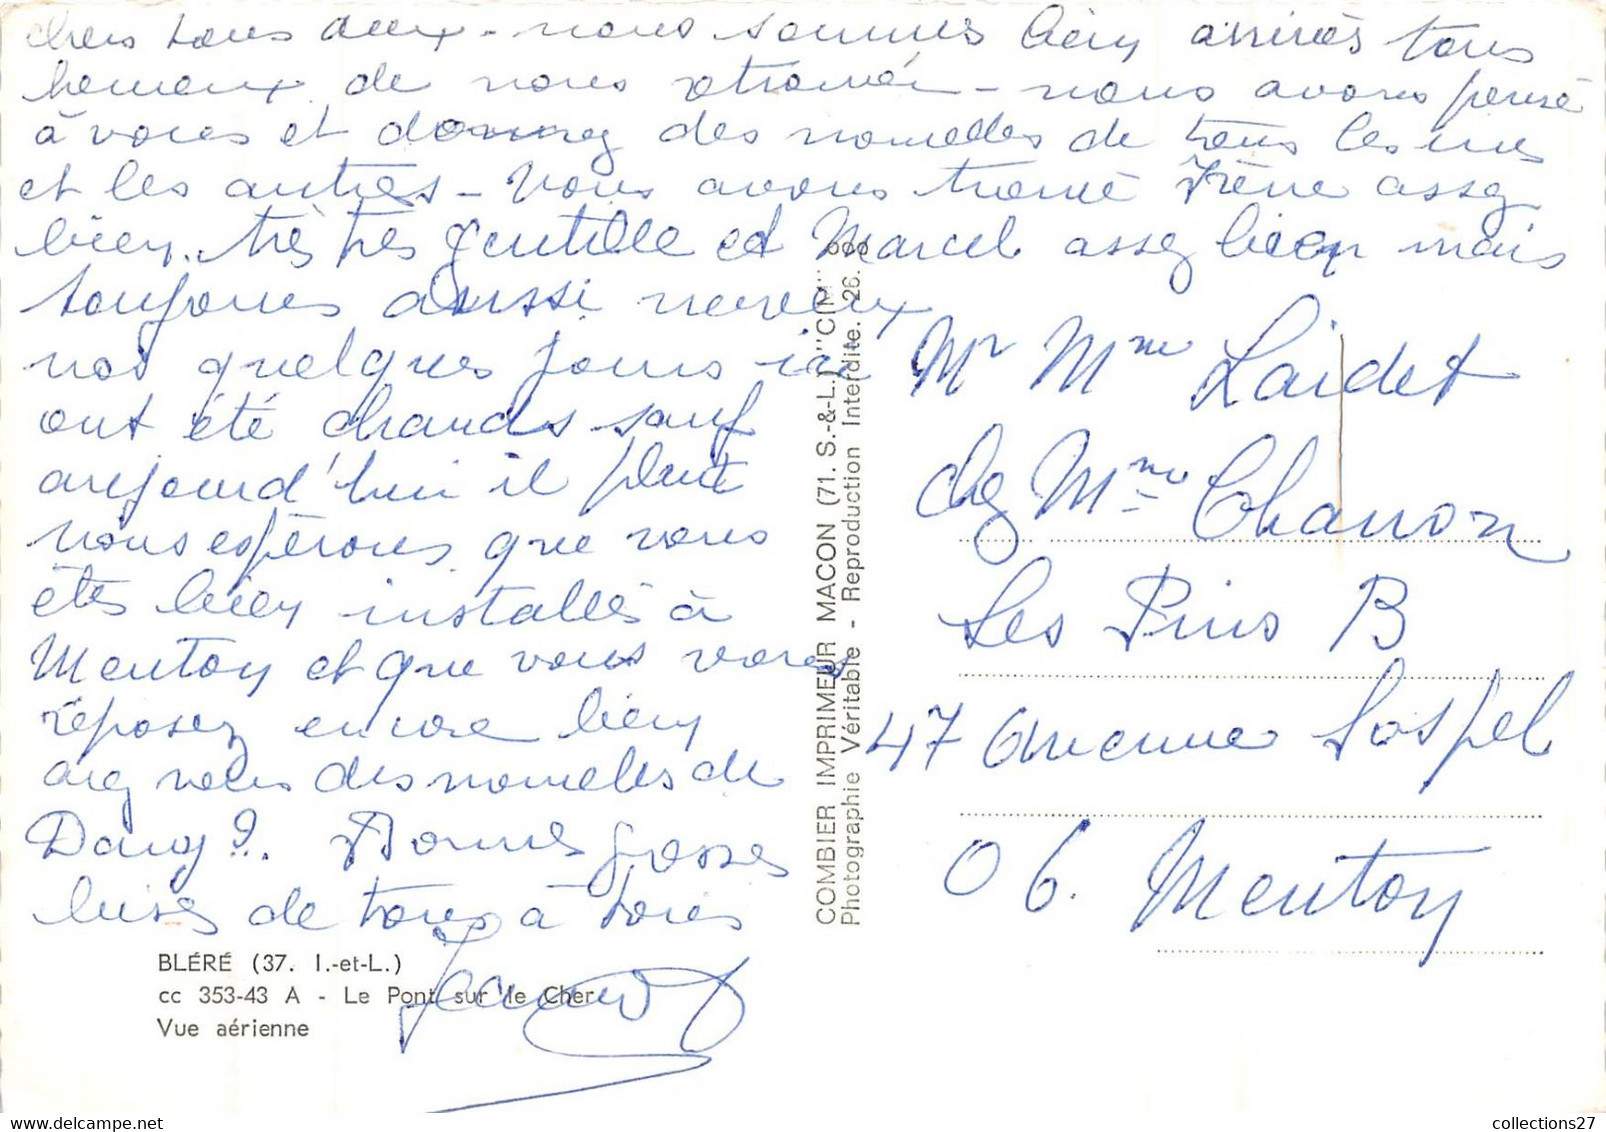 chers tous deux - nous sommes bien arrivés tous
heureux de nous retrouver - nous avons pensé
à vous et donnez des nouvelles de tous les uns
et les autres - Nous avons trouvé Irène assez
bien. très très gentille et Marcel assez bien mais
toujours aussi nerveux
nos quelques jours ici
ont été chauds sauf
aujourd'hui il pleut
nous espérons que vous
êtes bien installés à
Menton et que vous vous
reposez encore bien
avez vous des nouvelles de
Dany ?. Bonnes grosses
bises de tous à tous
BLÉRÉ (37. I.-et-L.)
cc 353-43 A - Le Pont sur le Cher
Vue aérienne
COMBIER IMPRIMEUR MACON (71. S.-&-L.) "CIM"
Photographie Véritable - Reproduction Interdite. 26.
Mr Mme Laidet
chez Mme Chanon
Les Pins B
47 Avenue Sospel
06. Menton
collections27